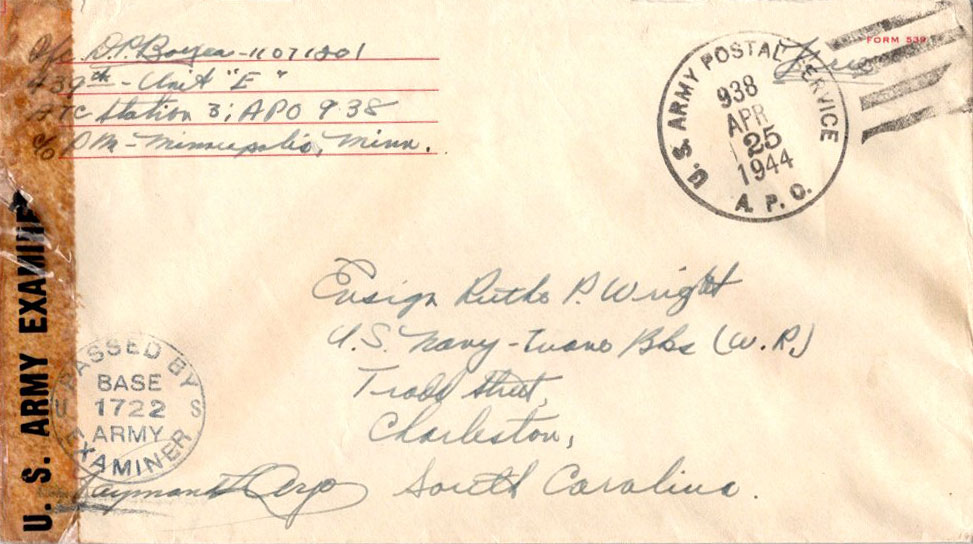 D.P. Boyea - 11071201
439th - Unit "E"
ATC Station 3; APO 938
c/o P.M. - Minneapolis, Minn.
FORM 539
Free
U.S. ARMY POSTAL SERVICE
938
APR
25
1944
A. P. O.
Ensign Ruthe P. Wright
U.S. Navy - Bks (W.R.)
Tradd Street,
Charleston,
South Carolina.
U. S. ARMY EXAMINE
PASSED BY
BASE
U 1722 S
ARMY
EXAMINER
Raymond